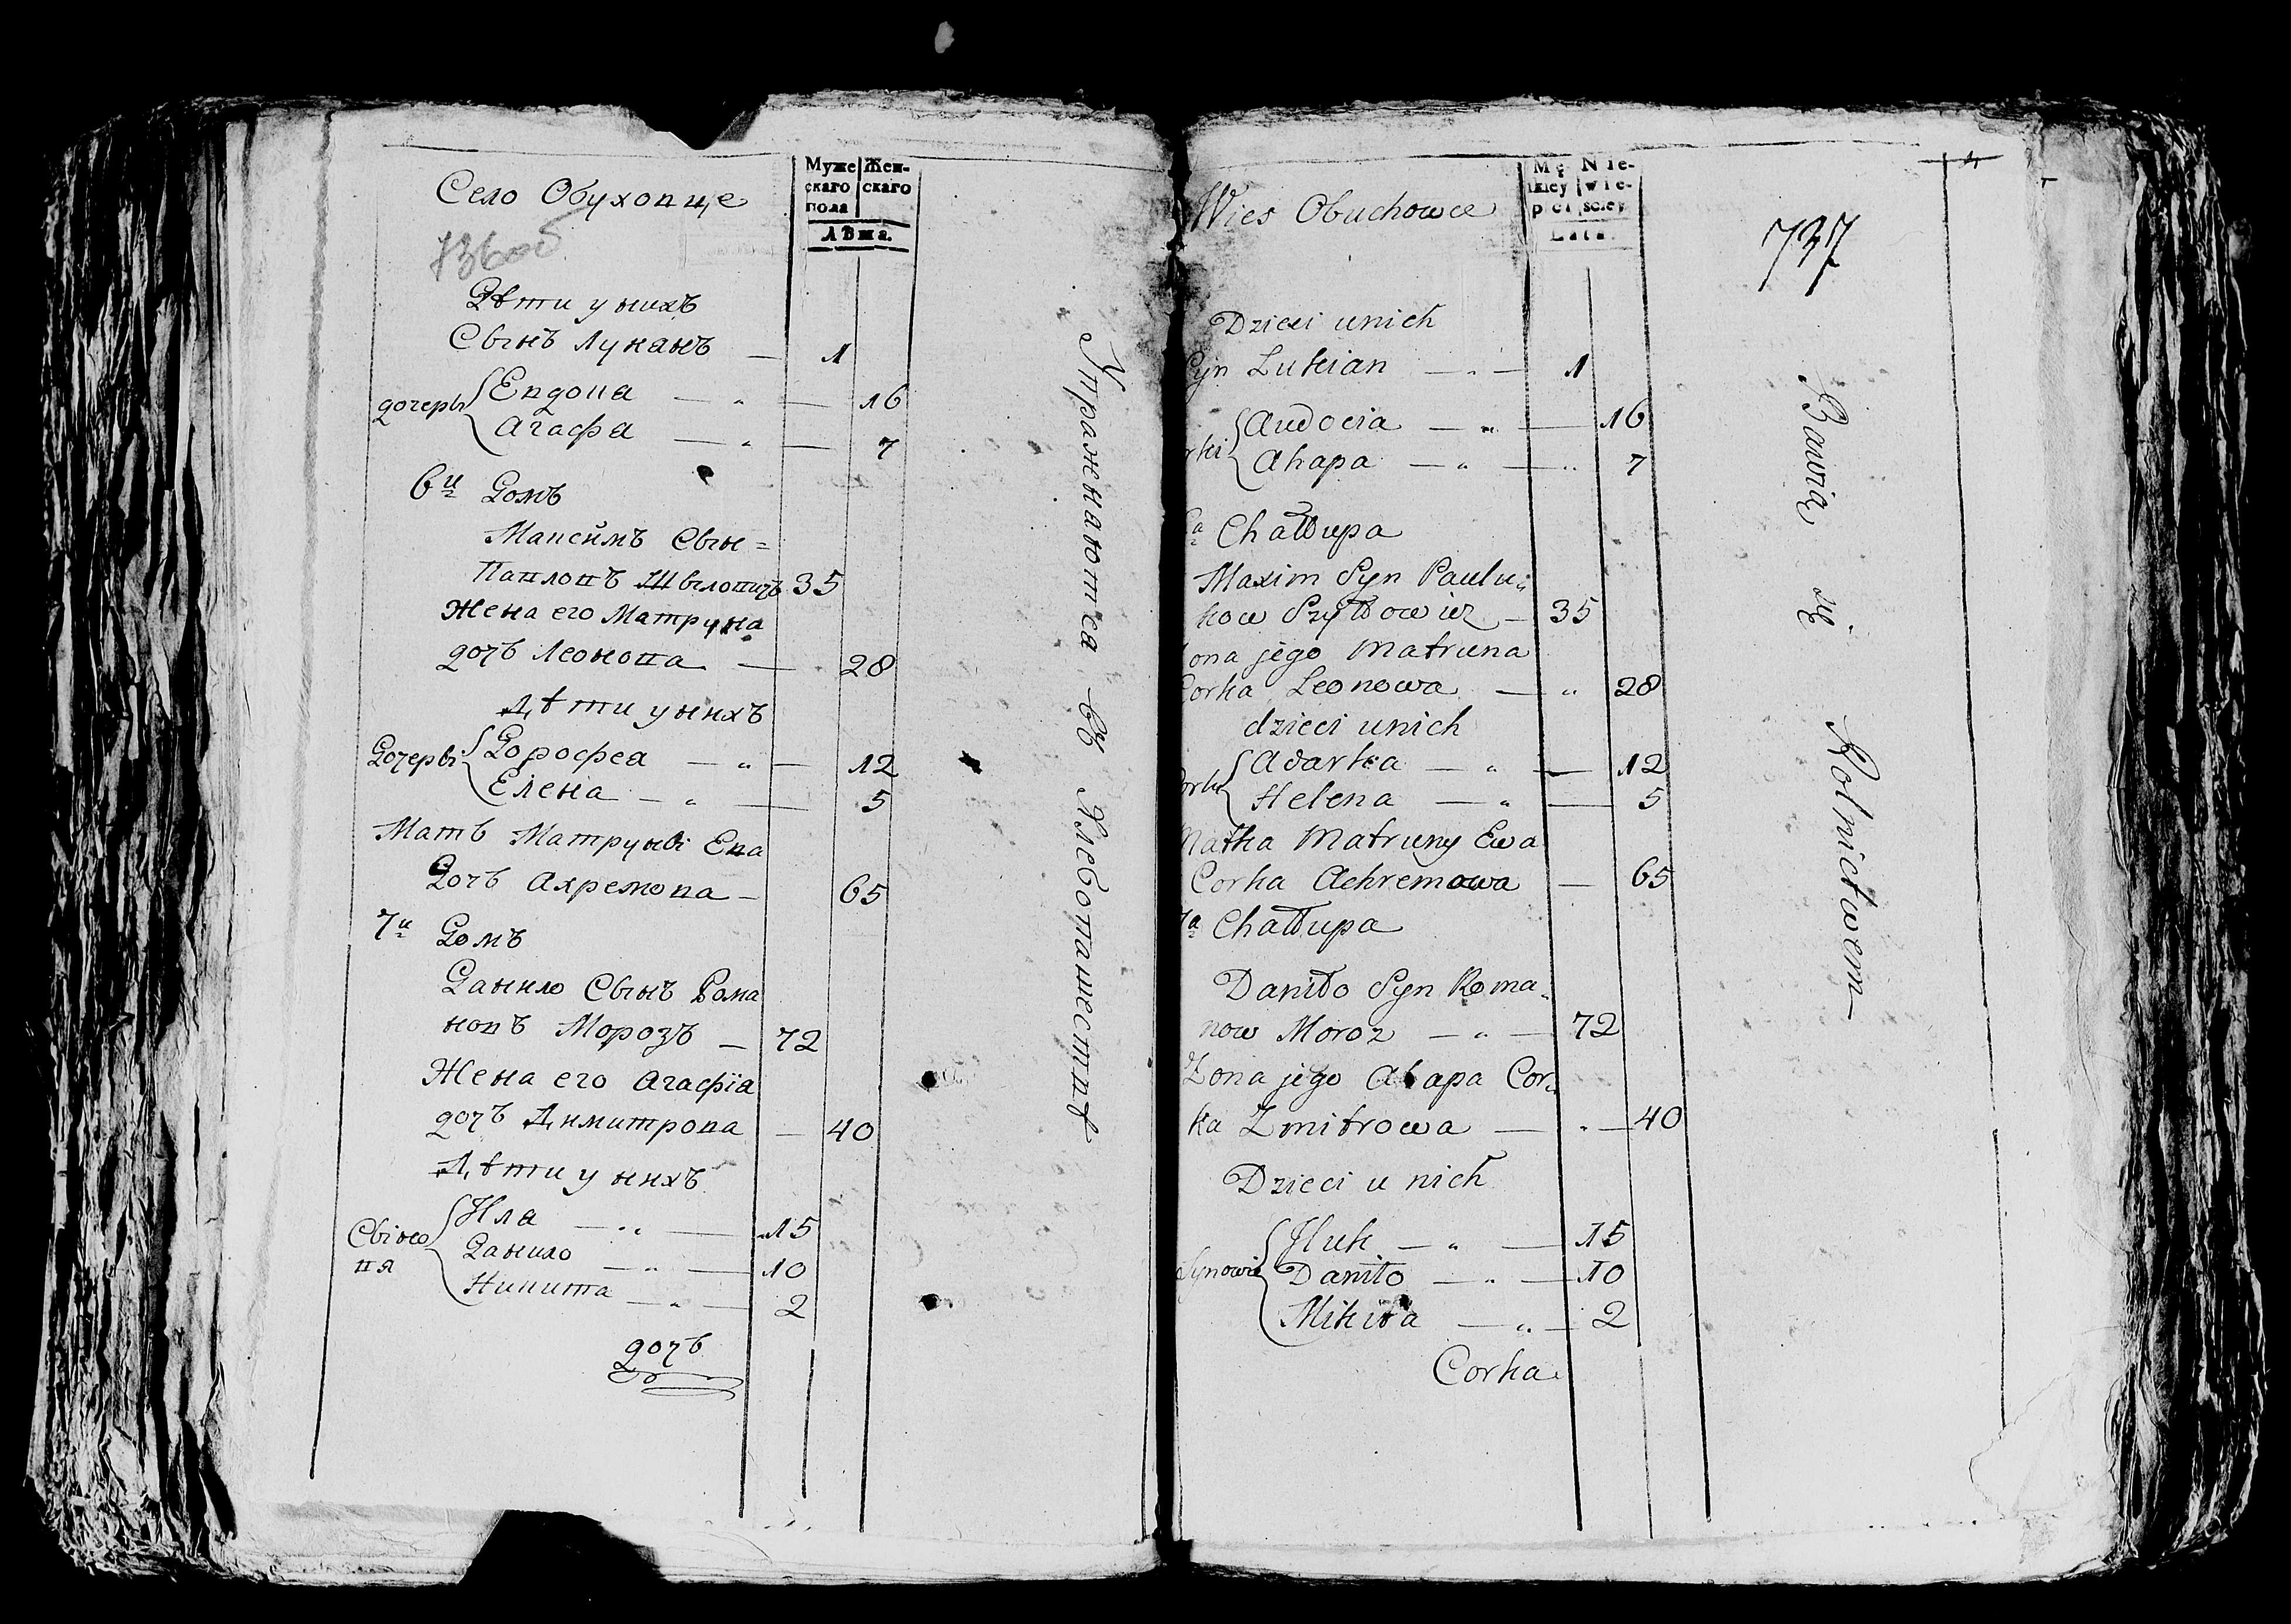 Село Обуховце
736об
Муже
скаго
пола
Жен-
скаго
Лѣта.
Дѣти у нихъ
Сынъ Луканъ — 1
дочеры { Евдоца — „ — 16
Агафа — „ — 7
6й Домъ
Максимъ Сын=
Павловъ Шыловичъ 35
Жена его Матруна
дочь Леонова — 28
Дѣти у нихъ
Дочеры { Дорофеа — „ — 12
Елена — „ — 5
Мать Матруны Ева
Дочь Ахремова — 65
7й Домъ
Данило Сынъ Рома
новъ Морозъ — 72
Жена его Агафїа
дочь Димитрова — 40
Дѣти у нихъ
Сыно
вя { Ила — „ — 15
Данило — „ — 10
Никита — „ — 2
дочь
Упражнаютса въ Хлебопашествѣ
Wies Obuchowce
Mę-
zkiey
płci
Nie-
wie-
sciey
Lata.
737
Dzieci unich
Syn Lukian — „ — 1
rki { Audocia — „ — 16
Ahapa — „ — „ 7
a Chałłupa
Maxim Syn Paulu-
kow Szyłłowicz — 35
ona jego Matruna
Corka Leonowa — „ 28
dzieci unich
orki { Adarkea — „ — 12
Helena — „ — 5
Matka Matruny Ewa
Corka Achremowa — 65
7a Chałłupa
Daniło Syn Roma-
now Moroz — „ — 72
Zona jego Ahapa Cor-
ka Zmitrowa — „ — 40
Dzieci u nich
Synowie { Iluk — „ — 15
Daniło — „ — 10
Mikita — „ — 2
Corka
Bawią się Rolnictwem